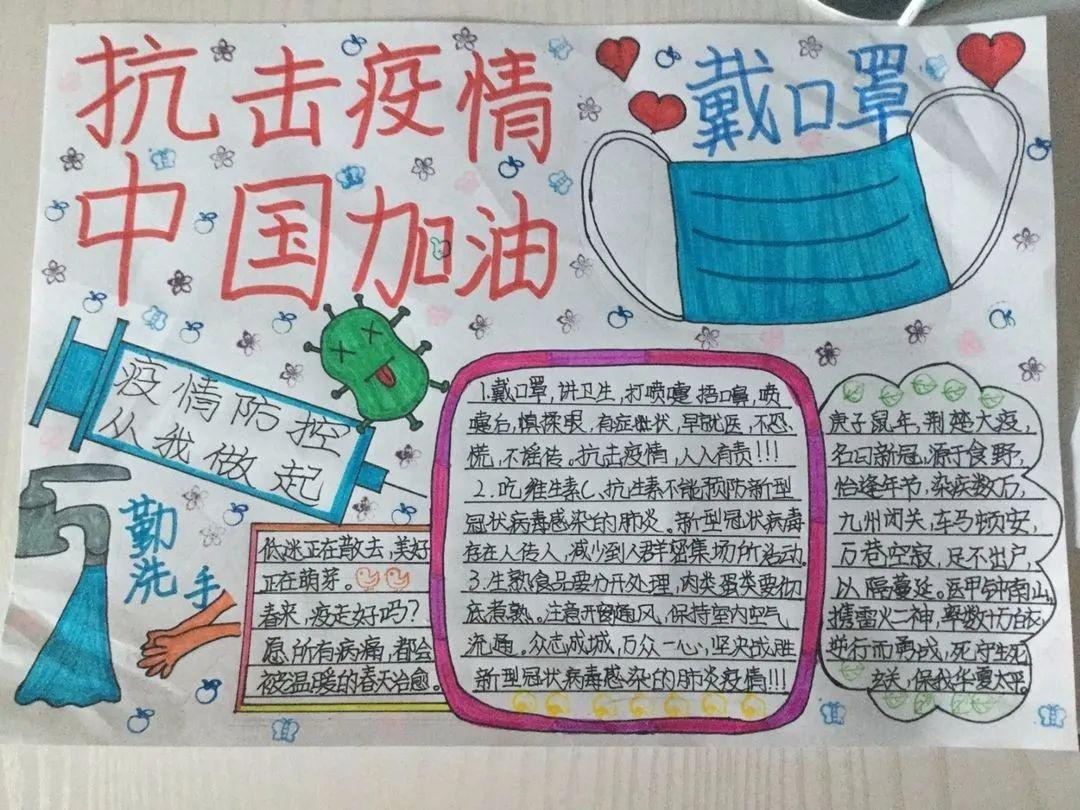 抗击疫情
中国加油
戴口罩
疫情防控
从我做起
勤洗手
低迷正在散去,美好
正在萌芽。
春来,疫走好吗?
愿所有病痛,都会
被温暖的春天治愈。
1.戴口罩,讲卫生,打喷嚏捂口鼻,喷
嚏后,慎揉眼,有症状,早就医,不恐
慌,不谣传。抗击疫情,人人有责!!!
2.吃维生素C、抗生素不能预防新型
冠状病毒感染的肺炎。新型冠状病毒
存在人传人,减少到人群密集场所活动。
3.生熟食品要分开处理,肉类蛋类要彻
底煮熟。注意开窗通风,保持室内空气
流通。众志成城,万众一心,坚决战胜
新型冠状病毒感染的肺炎疫情!!!
庚子鼠年,荆楚大疫,
名曰新冠,源于食野,
恰逢年节,染疾数万,
九州闭关,车马顿安,
万巷空寂,足不出户,
以隔蔓延。医甲钟南山,
携雷火二神,率数十万白衣,
逆行而勇战,死守生死
玄关,保我华夏太平。